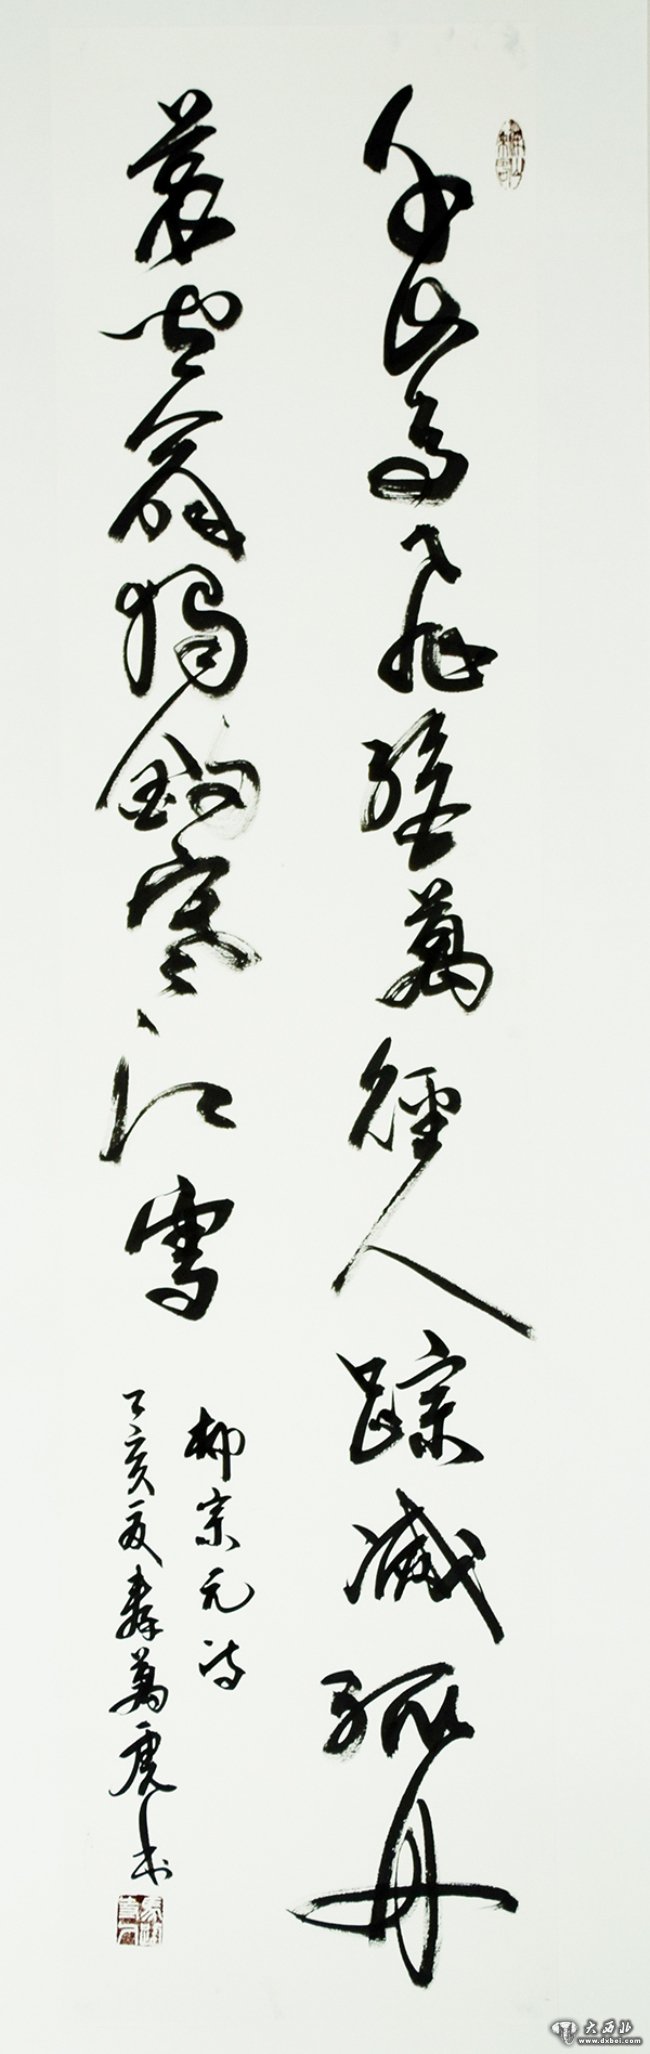 千山鸟飞绝萬径人踪滅孤舟
蓑笠翁獨钓寒江雪
柳宗元诗
丁亥夏 萬虎书
大西北
www.dxbei.com